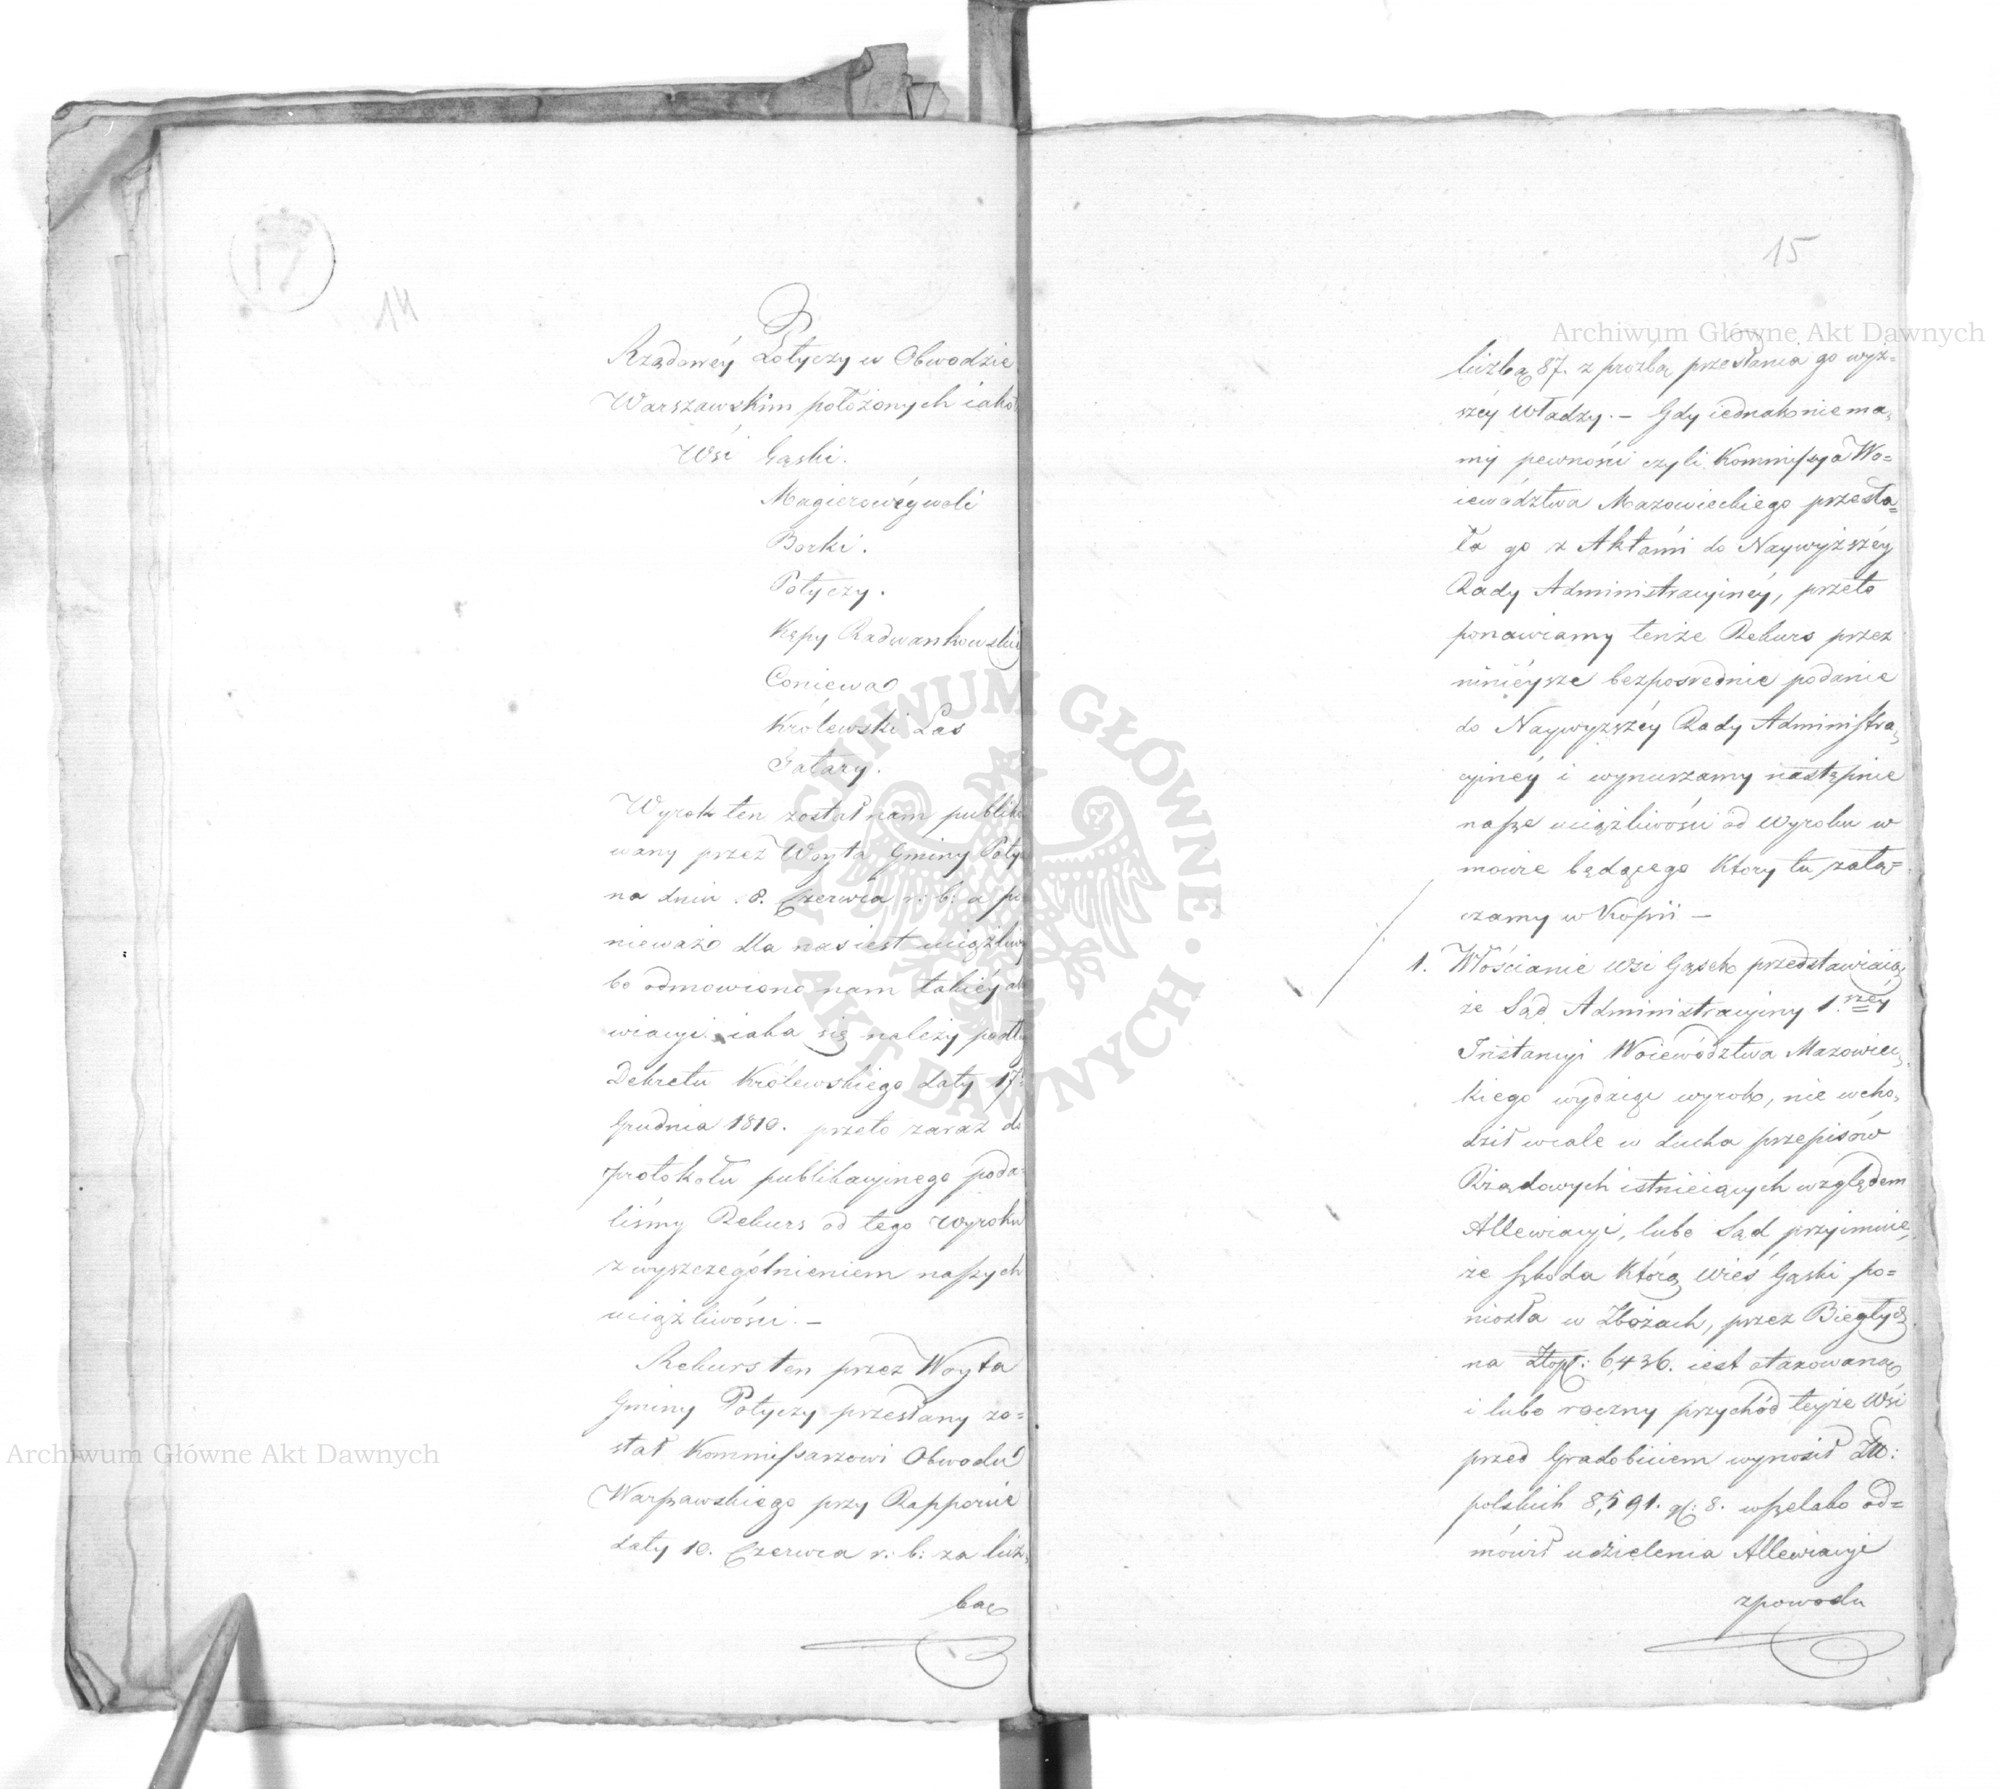 14
Rządowéy Potyczy w Obwodzie
Warszawskim położonych iako
Wsi Gąski.
Magierowéywoli
Borki.
Potyczy.
Kępy Radwankowskiéy
Coniewa
Królewski Las
Tatary.
Wyrok ten został nam publiko
wany przez Woyta Gminy Poty
na dniu 8. Czerwca r: b: a po
nieważ dla nas iest uciążliwy
bo odmowiono nam takiéy alle
wiacyi iaka się należy podłu
Dekretu Królewskiego daty 17.
Grudnia 1810. przeto zaraz do
protokołu publikacyinego poda=
liśmy Rekurs od tego wyroku
z wyszczególnieniem naszych
uciążliwości. —
Rekurs ten przez Woyta
Gminy Potyczy przesłany zo=
stał Kommissarzowi Obwodu
Warszawskiego przy Rapporcie
daty 10. Czerwca r: b: za licz=
bą
15
liczbą 87. z prozbą przesłania go wyż=
széy Władzy. — Gdy iednak niema=
my pewności czyli Kommissya Wo=
iewództwa Mazowieckiego przesła=
ła go z Aktami do Naywyższéy
Rady Administracyinéy, przeto
ponawiamy tenże Rekurs przez
ninieysze bezposrednie podanie
do Naywyższéy Rady Administra=
cyinéy i wynurzamy następnie
nasze uciążliwości od Wyroku w
mowie będącego Ktory tu załą=
czamy w Kopii —
1. Włościanie wsi Gąsek przedstawiaią
że Sąd Administracyiny 1.széy
Instancyi Woiewództwa Mazowiec=
kiego wydaiąc wyrok, nie wcho=
dził wcale w ducha przepisów
Rządowych istnieiących względem
Allewiacyi, lubo Sąd przyimuie,
że szkoda Którą wieś Gąski po=
niosła w Zbożach, przez Biegłych
na Złop: 6,436. iest otaxowaną
i lubo roczny przychód teyże Wsi
przed Gradobiciem wynosił Zło:
polskich 8,591. gr: 8. wszelako od=
mówił udzielenia Allewiacyi
zpowodu
Archiwum Główne Akt Dawnych
Archiwum Główne Akt Dawnych
ARCHIWUM GŁÓWNE · AKT DAWNYCH ·